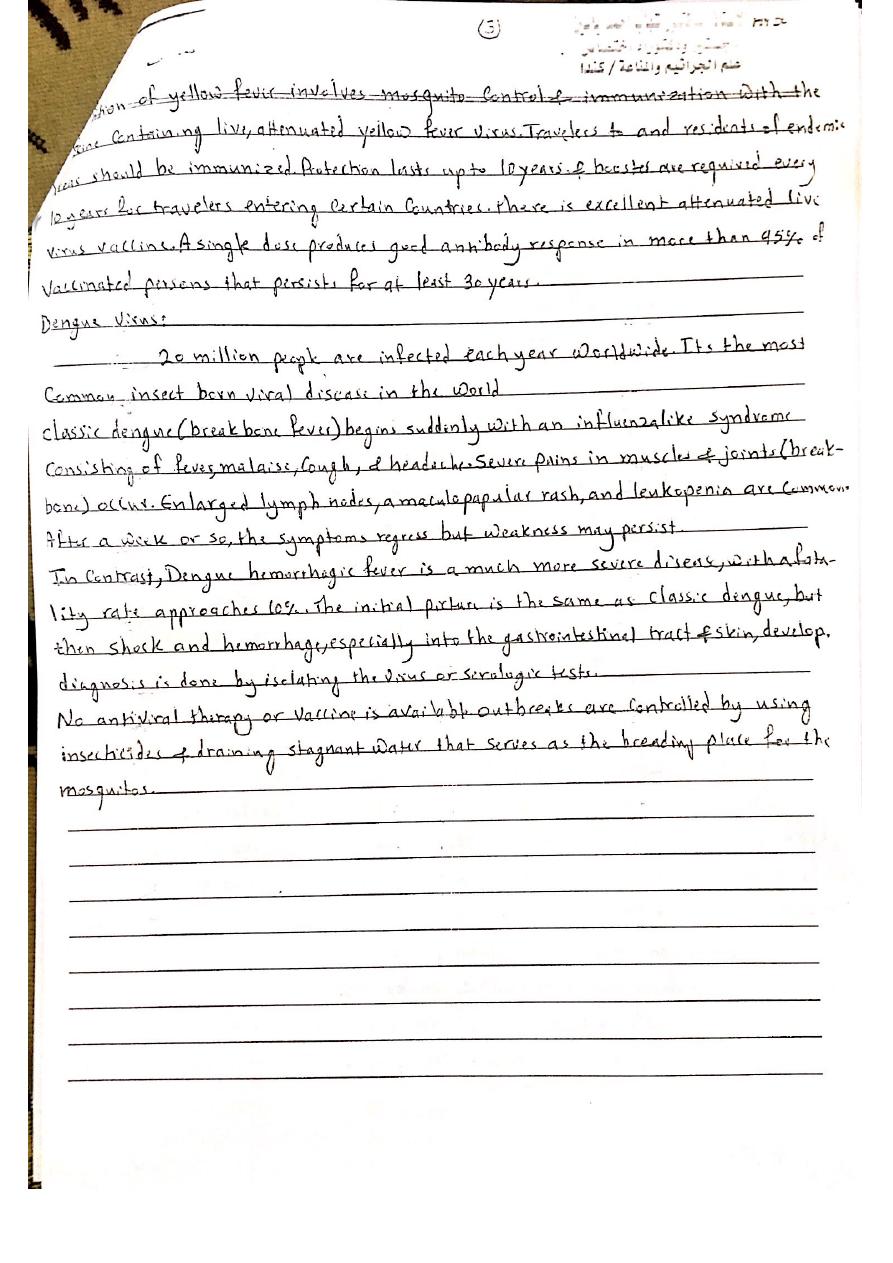 (3)
علم الجراثيم والمناعة / كندا
of yellow fever involves mosquito control & immunization with the
containing live, attenuated yellow fever virus. Travelers to and residents of endemic
should be immunized. Protection lasts up to 10 years. & booster are required every
10 years for travelers entering certain countries. there is excellent attenuated live
virus vaccine. A single dose produces good antibody response in more than 95% of
vaccinated persons that persists for at least 30 years.
Dengue Virus:
20 million people are infected each year worldwide. Its the most
Common insect born viral disease in the world
classic dengue (break bone fever) begins suddenly with an influenzalike syndrome
consisting of fever, malaise, cough, & headache. Severe pains in muscles & joints (break-
bone) occur. Enlarged lymph nodes, a maculopapular rash, and leukopenia are common.
After a week or so, the symptoms regress but weakness may persist.
In Contrast, Dengue hemorrhagic fever is a much more severe disease, with a fata-
lity rate approaches 10%. The initial picture is the same as classic dengue, but
then shock and hemorrhage, especially into the gastrointestinal tract & skin, develop.
diagnosis is done by isolating the virus or serologic tests.
No antiviral therapy or vaccine is available. outbreaks are controlled by using
insecticides & draining stagnant water that serves as the breading place for the
mosquitos.